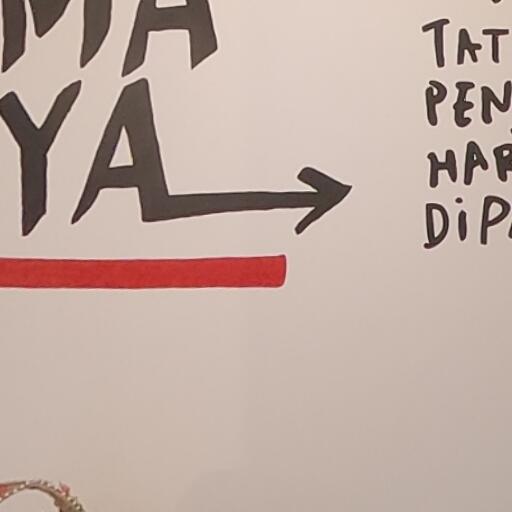 MA
YA
TAT
PEN
HAR
DiPA